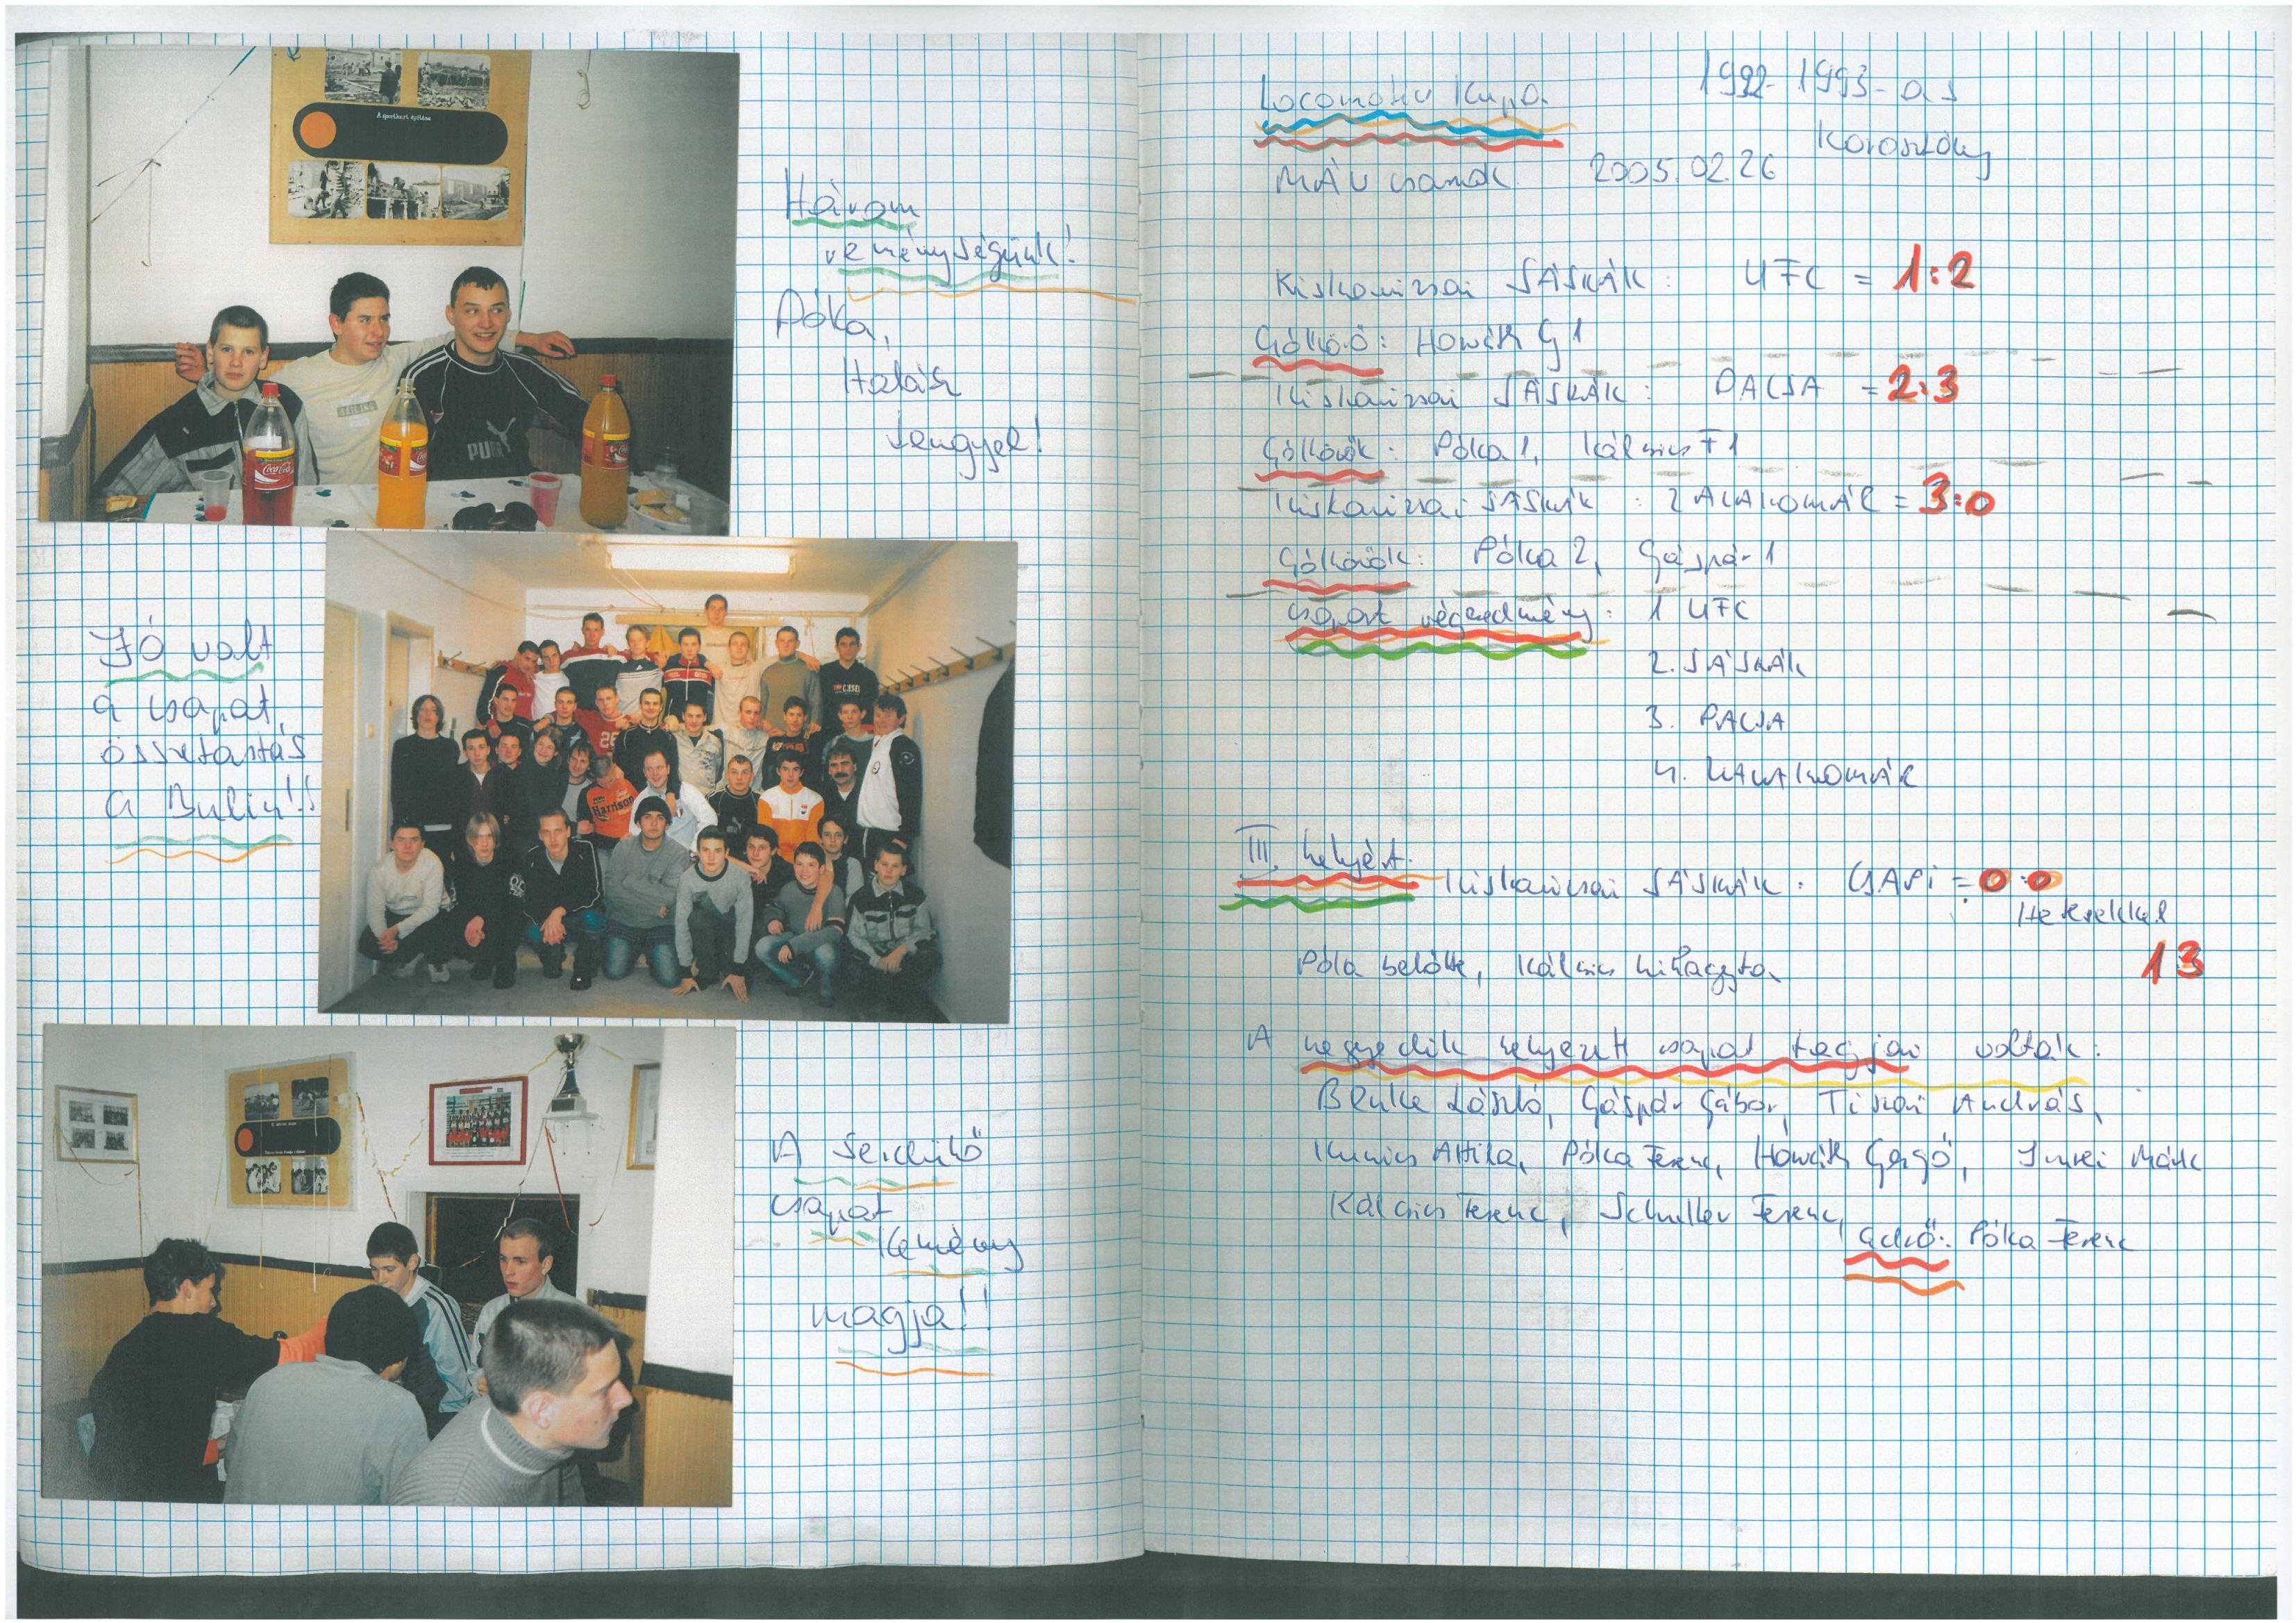 Három
reménységünk!
Póka,
Halász
Lengyel!
Jó volt
a csapat,
összetartás
a Bulin!!
A serdülő
csapat
Kemény
magja!!
A sportkert építése
Coca-Cola
PUMA
26
Harrison
DIESEL
Locomotiv Kupa.
1992-1993-as
Korosztály
MÁV csarnok 2005.02.26
Kiskanizsai SÁSKÁK : UFC = 1:2
Góllövő: Horváth G 1
Kiskanizsai SÁSKÁK : PACSA = 2:3
Góllövők: Póka 1, Kálcsics F 1
Kiskanizsai SÁSKÁK : ZALAKOMÁR = 3:0
Góllövők: Póka 2, Gáspár 1
csoport végeredmény: 1 UFC
2. SÁSKÁK
3. PACSA
4. ZALAKOMÁR
III. helyért. Kiskanizsai SÁSKÁK : GAPI = 0:0
Hetesekkel
Póka belőtte, Kálcsics kihagyta
1 3
A negyedik helyezett csapat tagjai voltak:
László, Gáspár Gábor, András,
Kuzsics Attila, Póka Ferenc, Horváth Gergő, Imrei Márk
Kálcsics Ferenc, Schuller Ferenc,
edző: Póka Ferenc